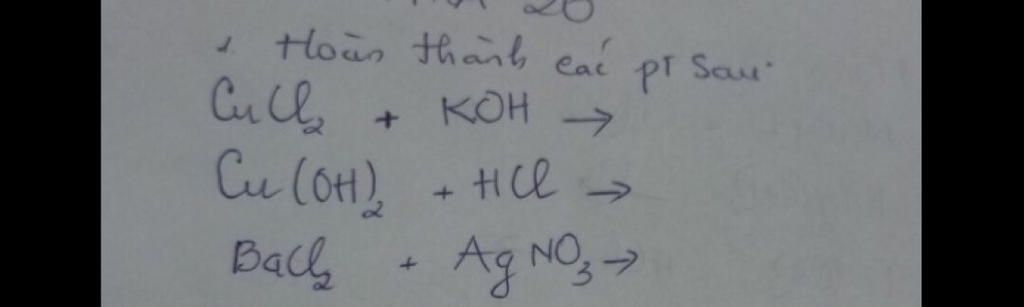 1. Hoàn thành các pT sau.
CuCl₂ + KOH →
Cu(OH)₂ + HCl →
BaCl₂ + AgNO₃ →